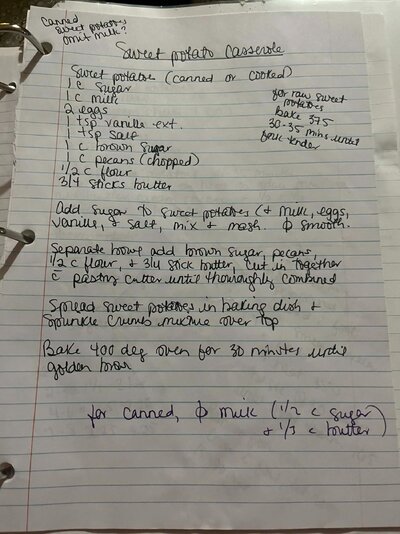 Canned
sweet potatoes
omit milk?
Sweet potato Casserole
Sweet potatoes (canned or cooked)
1 c sugar
1 c milk
2 eggs
1 tsp vanilla ext.
1 tsp salt
1 c brown sugar
1 c pecans (chopped)
1/2 c flour
3/4 sticks butter
for raw sweet
potatoes
bake 375
30-35 mins until
fork tender
Add sugar to sweet potatoes (& milk, eggs,
vanilla, & salt, mix & mash. Φ smooth.
Separate bowl add brown sugar, pecans,
1/2 c flour, & 3/4 stick butter, cut in together
c̄ pastry cutter until thoroughly combined
Spread sweet potatoes in baking dish &
sprinkle crumb mixture over top
Bake 400 deg oven for 30 minutes until
golden brow
for canned, Φ milk (1/2 c sugar
& 1/3 c butter)